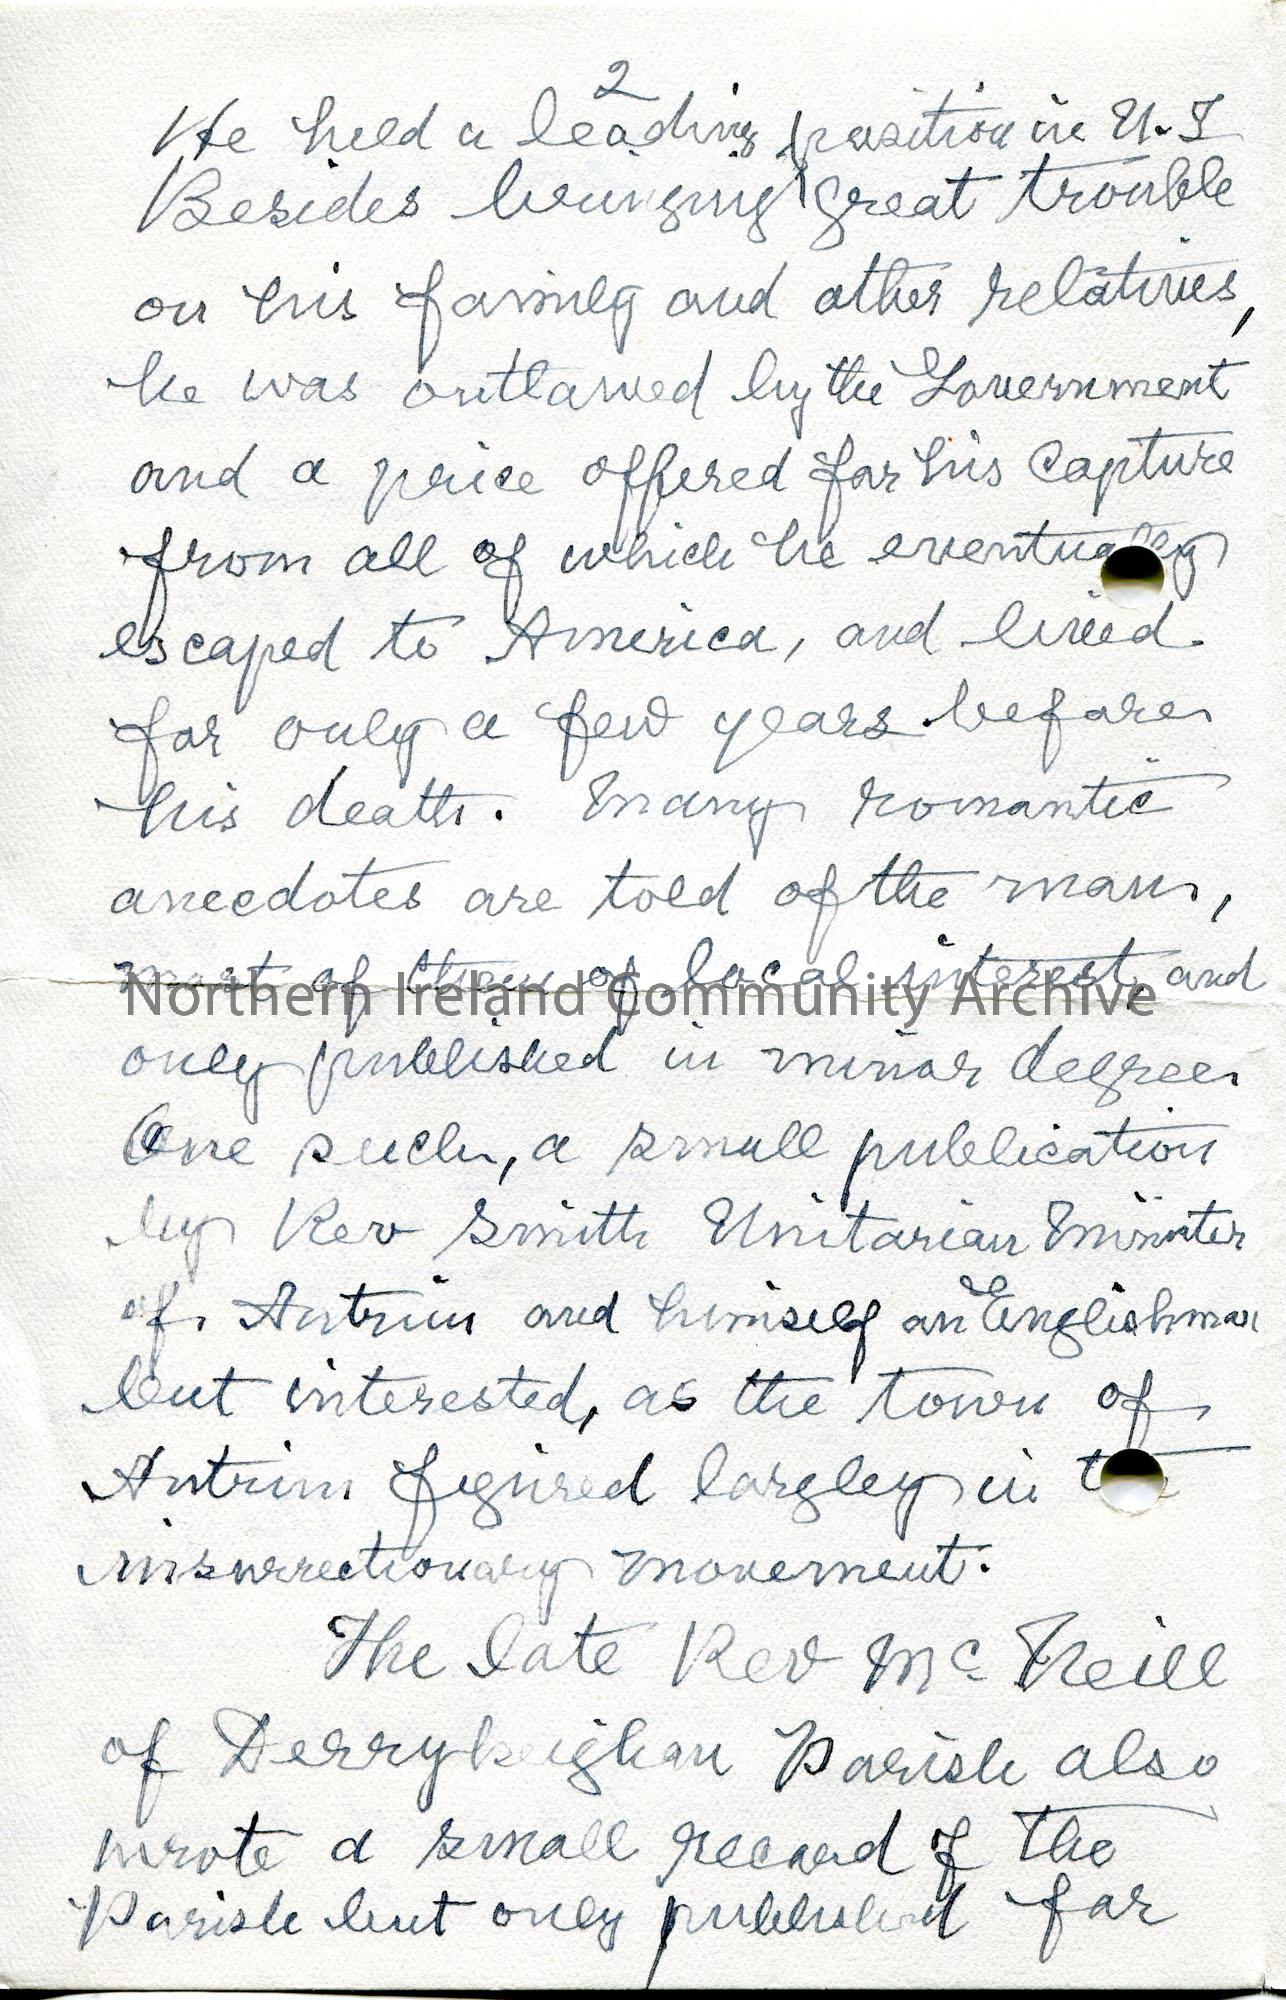 2
He held a leading position in U.I
Besides bringing great trouble
on his family and other relatives,
he was outlawed by the Government
and a price offered for his capture
from all of which he eventually
escaped to America, and lived
for only a few years before
his death. Many romantic
anecdotes are told of the man,
most of them of local interest, and
Northern Ireland Community Archive
only published in minor degree
One such, a small publication
by Rev Smith Unitarian Minister
of Antrim and himself an Englishman
but interested, as the town of
Antrim figured largley in the
insurrectionary movement.
The late Rev McNeill
of Derrykeighan Parish also
wrote a small record of the
Parish but only published for